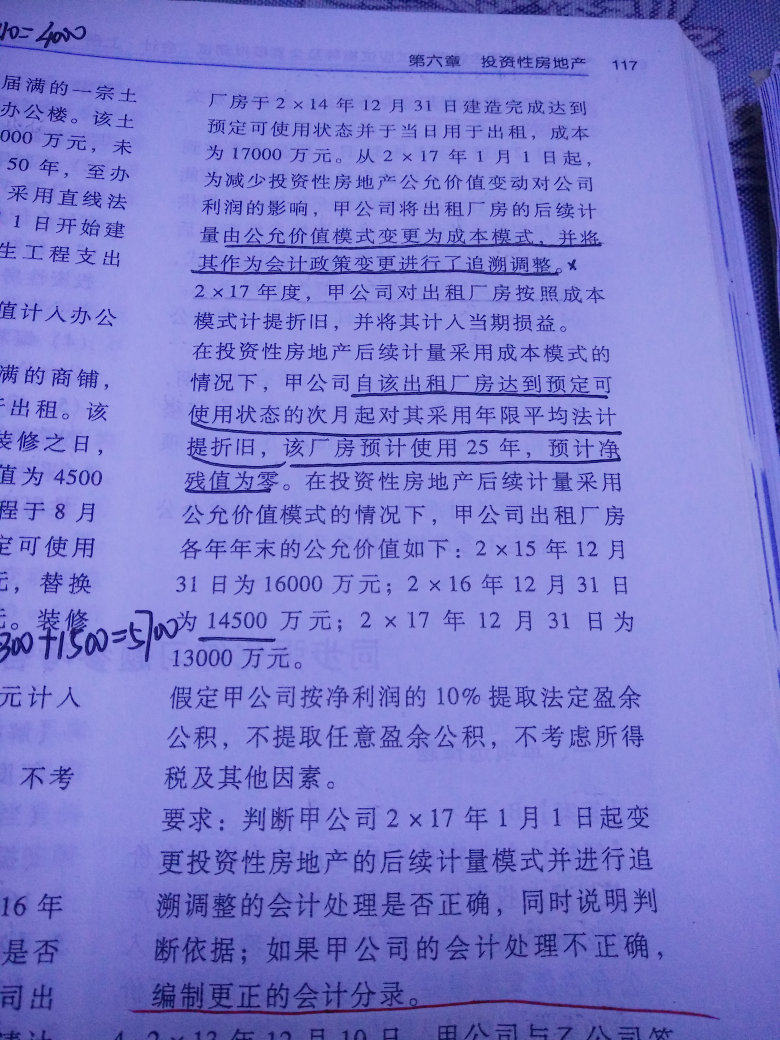 10=4000
第六章 投资性房地产 117
届满的一宗土
办公楼。该土
000 万元，未
50 年，至办
采用直线法
1 日开始建
生工程支出
值计入办公
满的商铺，
于出租。该
装修之日，
值为 4500
程于 8 月
定可使用
元，替换
元。装修
300+1500=5700
元计入
不考
16 年
是否
司出
厂房于 2×14 年 12 月 31 日建造完成达到
预定可使用状态并于当日用于出租，成本
为 17000 万元。从 2×17 年 1 月 1 日起，
为减少投资性房地产公允价值变动对公司
利润的影响，甲公司将出租厂房的后续计
量由公允价值模式变更为成本模式，并将
其作为会计政策变更进行了追溯调整。×
2×17 年度，甲公司对出租厂房按照成本
模式计提折旧，并将其计入当期损益。
在投资性房地产后续计量采用成本模式的
情况下，甲公司自该出租厂房达到预定可
使用状态的次月起对其采用年限平均法计
提折旧，该厂房预计使用 25 年，预计净
残值为零。在投资性房地产后续计量采用
公允价值模式的情况下，甲公司出租厂房
各年年末的公允价值如下：2×15 年 12 月
31 日为 16000 万元；2×16 年 12 月 31 日
为 14500 万元；2×17 年 12 月 31 日为
13000 万元。
假定甲公司按净利润的 10% 提取法定盈余
公积，不提取任意盈余公积，不考虑所得
税及其他因素。
要求：判断甲公司 2×17 年 1 月 1 日起变
更投资性房地产的后续计量模式并进行追
溯调整的会计处理是否正确，同时说明判
断依据；如果甲公司的会计处理不正确，
编制更正的会计分录。
4. 2×13 年 12 月 10 日，甲公司与乙公司签